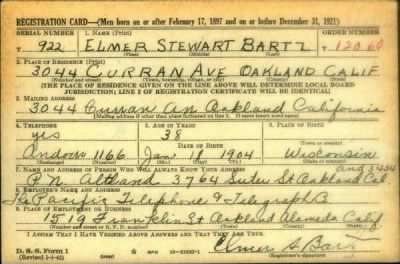 REGISTRATION CARD—(Men born on or after February 17, 1897 and on or before December 31, 1921)
SERIAL NUMBER 1. NAME (Print) ORDER NUMBER
T 922 ELMER STEWART BARTZ T 12060
2. PLACE OF RESIDENCE (Print)
3044 CURRAN AVE OAKLAND CALIF
(Number and street) (Town, township, village, or city) (County) (State)
[THE PLACE OF RESIDENCE GIVEN ON THE LINE ABOVE WILL DETERMINE LOCAL BOARD
JURISDICTION; LINE 2 OF REGISTRATION CERTIFICATE WILL BE IDENTICAL]
3. MAILING ADDRESS
3044 Curran Av Oakland California
[Mailing address if other than place indicated on line 2. If same insert word same]
4. TELEPHONE 5. AGE IN YEARS 6. PLACE OF BIRTH
yes 38
DATE OF BIRTH
Andover 1166 Jan 18 1904 Wisconsin
(Exchange) (Number) (Mo.) (Day) (Yr.) (State or country)
7. NAME AND ADDRESS OF PERSON WHO WILL ALWAYS KNOW YOUR ADDRESS
Altland 3764 Suter St Oakland Cal
8. EMPLOYER'S NAME AND ADDRESS
The Pacific Telephone & Telegraph Co.
9. PLACE OF EMPLOYMENT OR BUSINESS
1519 Franklin St Oakland Alameda Calif.
(Number and street or R. F. D. number) (Town) (County) (State)
I AFFIRM THAT I HAVE VERIFIED ABOVE ANSWERS AND THAT THEY ARE TRUE.
D. S. S. Form 1
(Revised 1-1-42) (over) Elmer S. Bartz